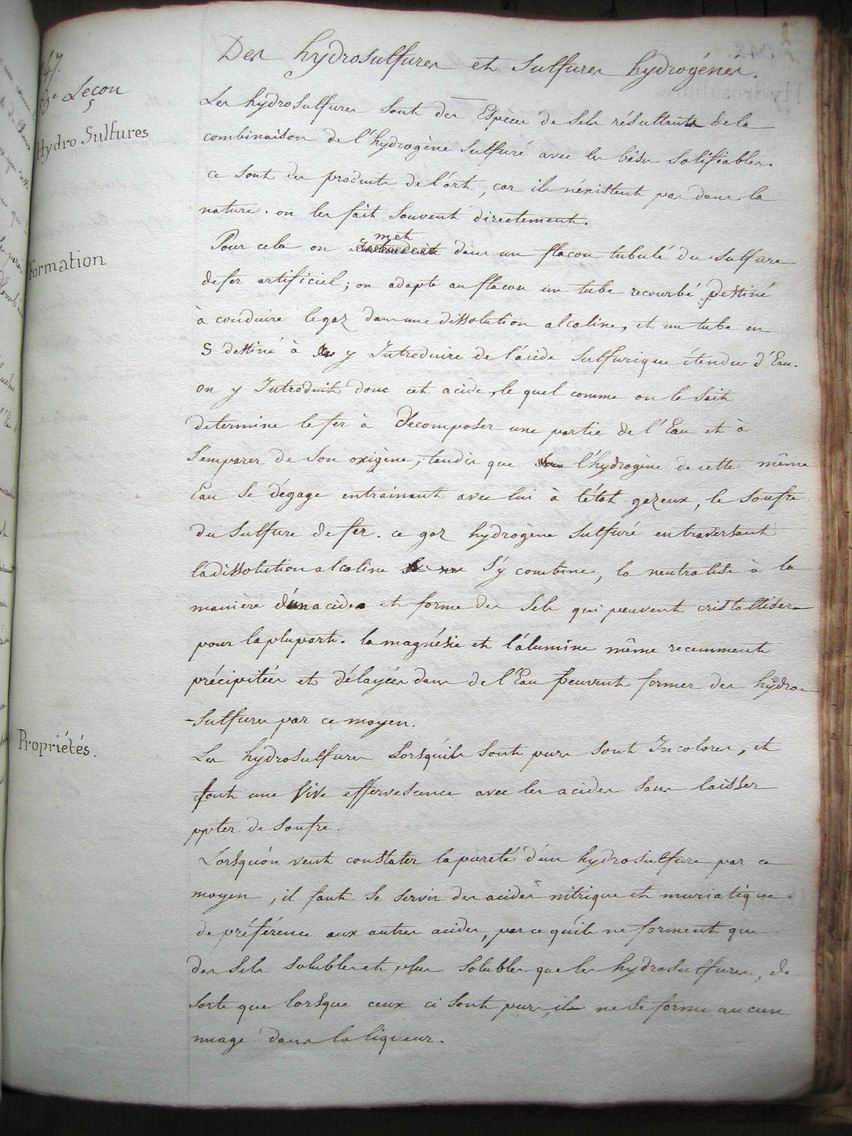 Des hydrosulfures et Sulfures hydrogénés.
47.
3e Leçon
Hydro Sulfures
Les hydrosulfures sont des Espèces de Sels résultants de la
combinaison de l'hydrogène Sulfuré avec les bases Salifiables.
ce sont des produits de l'art, car ils n'existent pas dans la
nature. on les fait Souvent directement.
Formation
Pour cela on met dans un flacon tubulé du Sulfure
de fer artificiel; on adapte au flacon un tube recourbé destiné
à conduire le gaz dans une dissolution alcaline, et un tube en
S destiné à y Introduire de l'acide Sulfurique étendu d'Eau.
on y Introduit donc cet acide, le quel comme on le Sait
determine le fer à décomposer une partie de l'Eau et à
S'emparer de Son oxigène, tandis que l'hydrogène de cette même
Eau Se dégage entrainant avec lui à l'état gazeux, le Soufre
du Sulfure de fer. ce gaz hydrogène Sulfuré en traversant
la dissolution alcaline S'y combine, la neutralise à la
manière d'un acide et forme des Sels qui peuvent cristalliser
pour la plupart. la magnésie et l'alumine même recemment
précipitées et délayées dans de l'Eau peuvent former des hydro-
-Sulfures par ce moyen.
Propriétés.
Les hydrosulfures Lorsqu'ils Sont purs Sont Incolores, et
font une vive effervescence avec les acides Sans laisser
ppter de Soufre.
Lorsqu'on veut constater la pureté d'un hydrosulfure par ce
moyen, il faut Se Servir des acides nitrique et muriatique
de préférence aux autres acides, parce qu'ils ne forment que
des Sels solubles et plus Solubles que les hydrosulfures, de
Sorte que lorsque ceux ci Sont purs, ils ne Se forme aucun
nuage dans la liqueur.